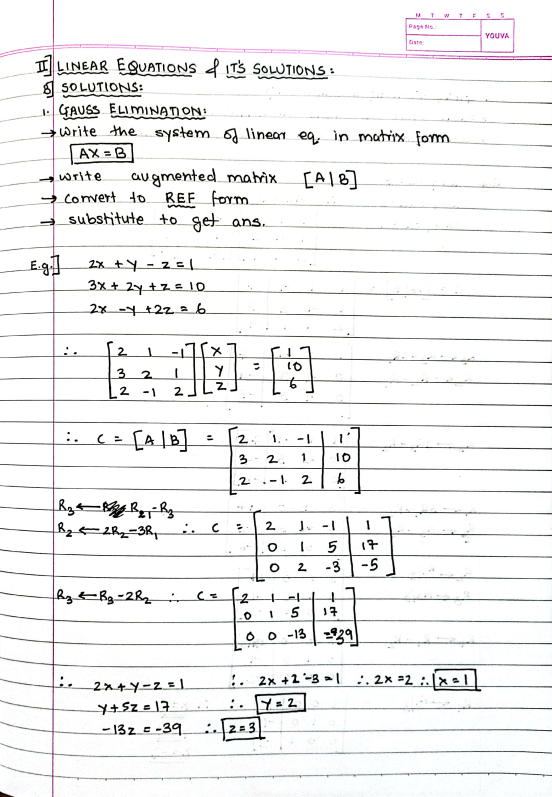 M T W T F S S
Page No.:
Date:
YOUVA
II] LINEAR EQUATIONS & IT'S SOLUTIONS:
§ SOLUTIONS:
1. GAUSS ELIMINATION:
→ Write the system of linear eq. in matrix form
AX = B
→ write augmented matrix [A|B]
→ convert to REF form
→ substitute to get ans.
E.g.] 2x + y - z = 1
3x + 2y + z = 10
2x - y + 2z = 6
∴ [2 1 -1] [x] = [1]
[3 2 1] [y] [10]
[2 -1 2] [z] [6]
∴ C = [A|B] = [2 1 -1 | 1]
[3 2 1 | 10]
[2 -1 2 | 6]
R3 ← R1 - R3
R2 ← 2R2 - 3R1 ∴ C = [2 1 -1 | 1]
[0 1 5 | 17]
[0 2 -3 | -5]
R3 ← R3 - 2R2 ∴ C = [2 1 -1 | 1]
[0 1 5 | 17]
[0 0 -13 | -39]
∴ 2x + y - z = 1 ∴ 2x + 2 - 3 = 1 ∴ 2x = 2 ∴ x = 1
y + 5z = 17 ∴ y = 2
-13z = -39 ∴ z = 3